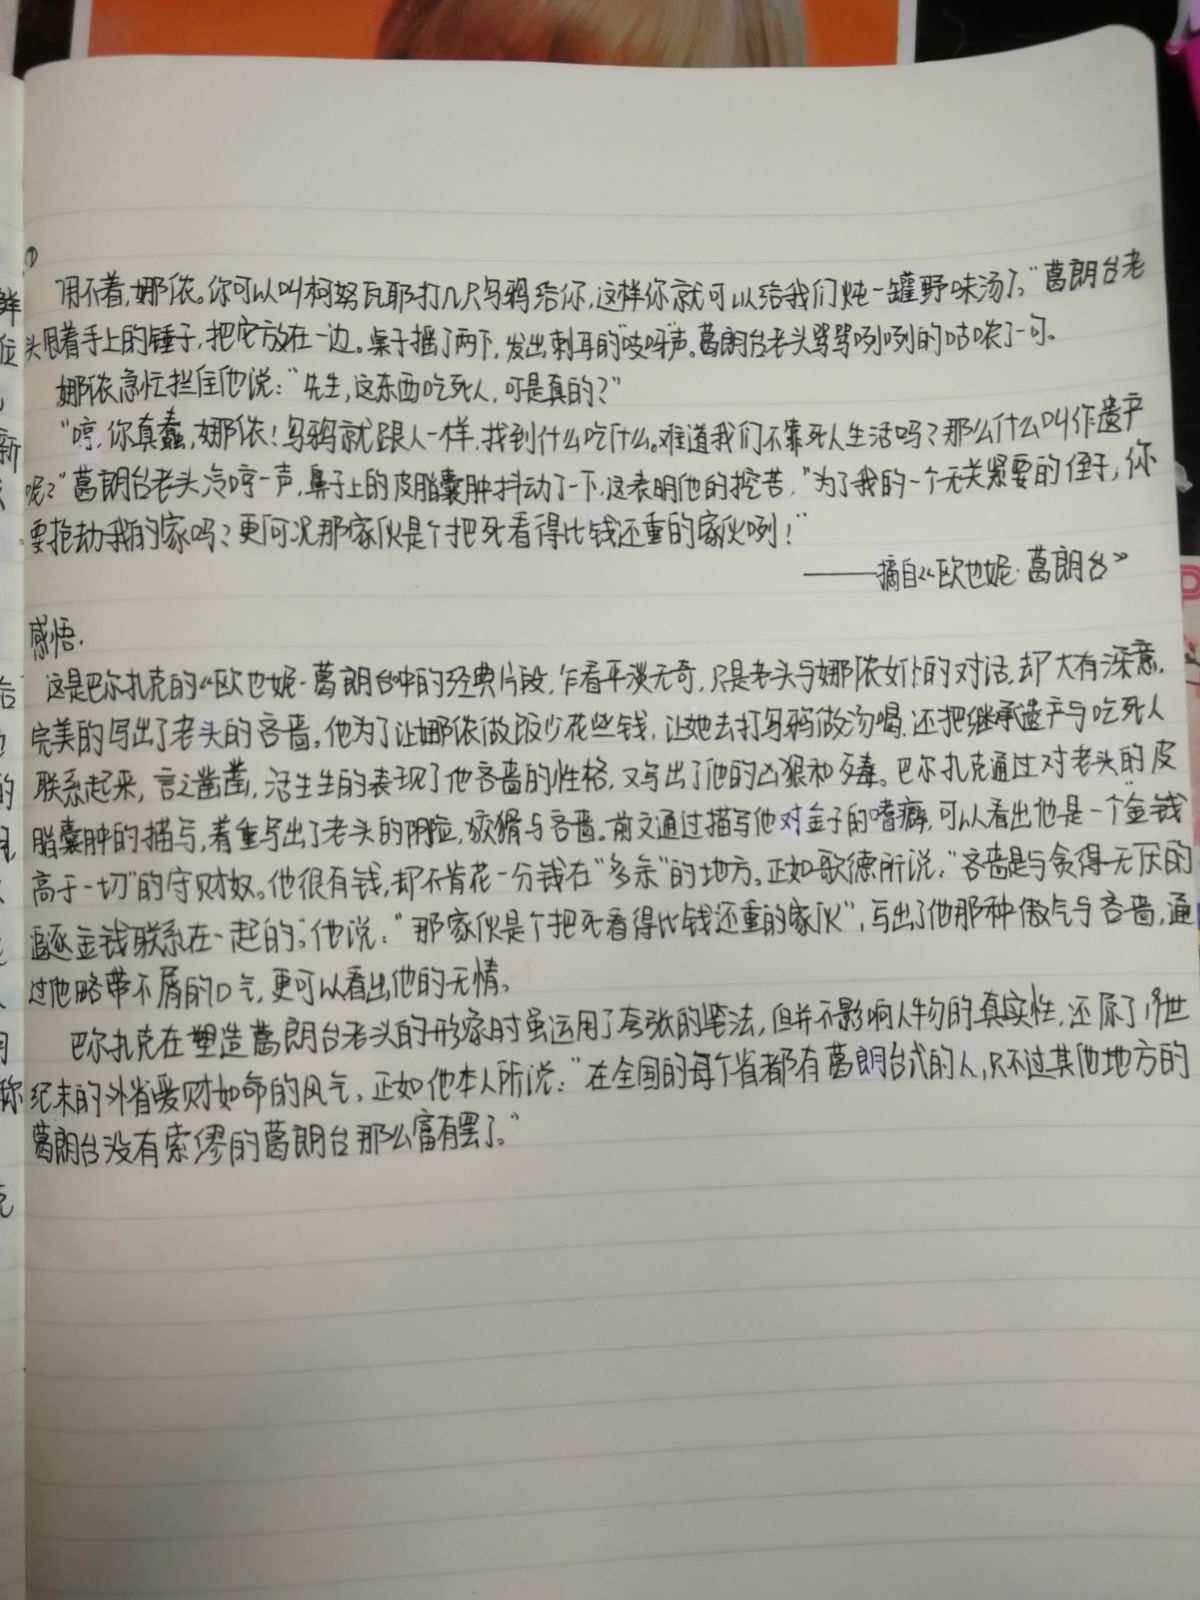 ①
用不着,娜侬。你可以叫柯努瓦耶打几只乌鸦给你,这样你就可以给我们炖一罐野味汤了。"葛朗台老
头甩着手上的锤子,把它放在一边。桌子摇了两下,发出刺耳的"吱呀"声。葛朗台老头骂骂咧咧的咕哝了一句。
娜侬急忙拦住他说:"先生,这东西吃死人,可是真的?"
"哼,你真蠢,娜侬!乌鸦就跟人一样,找到什么吃什么。难道我们不靠死人生活吗?那么什么叫作遗产
呢?"葛朗台老头冷哼一声,鼻子上的皮脂囊肿抖动了一下,这表明他的挖苦,"为了我的一个无关紧要的侄子,你
要抢劫我的家吗?更何况那家伙是个把死看得比钱还重的家伙咧!"
——摘自《欧也妮·葛朗台》
感悟.
这是巴尔扎克的《欧也妮·葛朗台》中的经典片段,乍看平淡无奇,只是老头与娜侬女仆的对话,却大有深意,
完美的写出了老头的吝啬。他为了让娜侬做饭少花些钱,让她去打乌鸦做汤喝,还把继承遗产与吃死人
联系起来,言之凿凿,活生生的表现了他吝啬的性格,又写出了他的凶狠和歹毒。巴尔扎克通过对老头的皮
脂囊肿的描写,着重写出了老头的阴险,狡猾与吝啬。前文通过描写他对金子的嗜癖,可以看出他是一个"金钱
高于一切"的守财奴。他很有钱,却不肯花一分钱在"多余"的地方。正如歌德所说,"吝啬是与贪得无厌的
追逐金钱联系在一起的。"他说:"那家伙是个把死看得比钱还重的家伙",写出了他那种傲气与吝啬,通
过他略带不屑的口气,更可以看出他的无情。
巴尔扎克在塑造葛朗台老头的形象时虽运用了夸张的笔法,但并不影响人物的真实性,还原了19世
纪末的外省爱财如命的风气。正如他本人所说:"在全国的每个省都有葛朗台式的人,只不过其他地方的
葛朗台没有索缪的葛朗台那么富有罢了。"
鲜
位
新
后
的
称